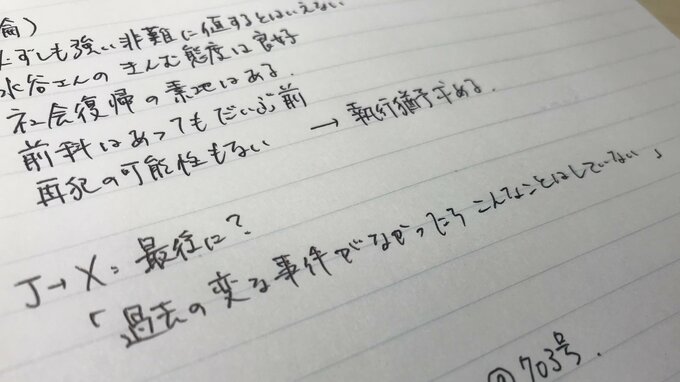 論)
必ずしも強い非難に値するとはいえない
水谷さんのきんむ態度は良好
社会復帰の素地はある.
前科はあってもだいぶ前
再犯の可能性もない → 執行猶予求める.
J→X: 最後に?
「過去の変な事件でなかったらこんなことはしていない」
@703号.